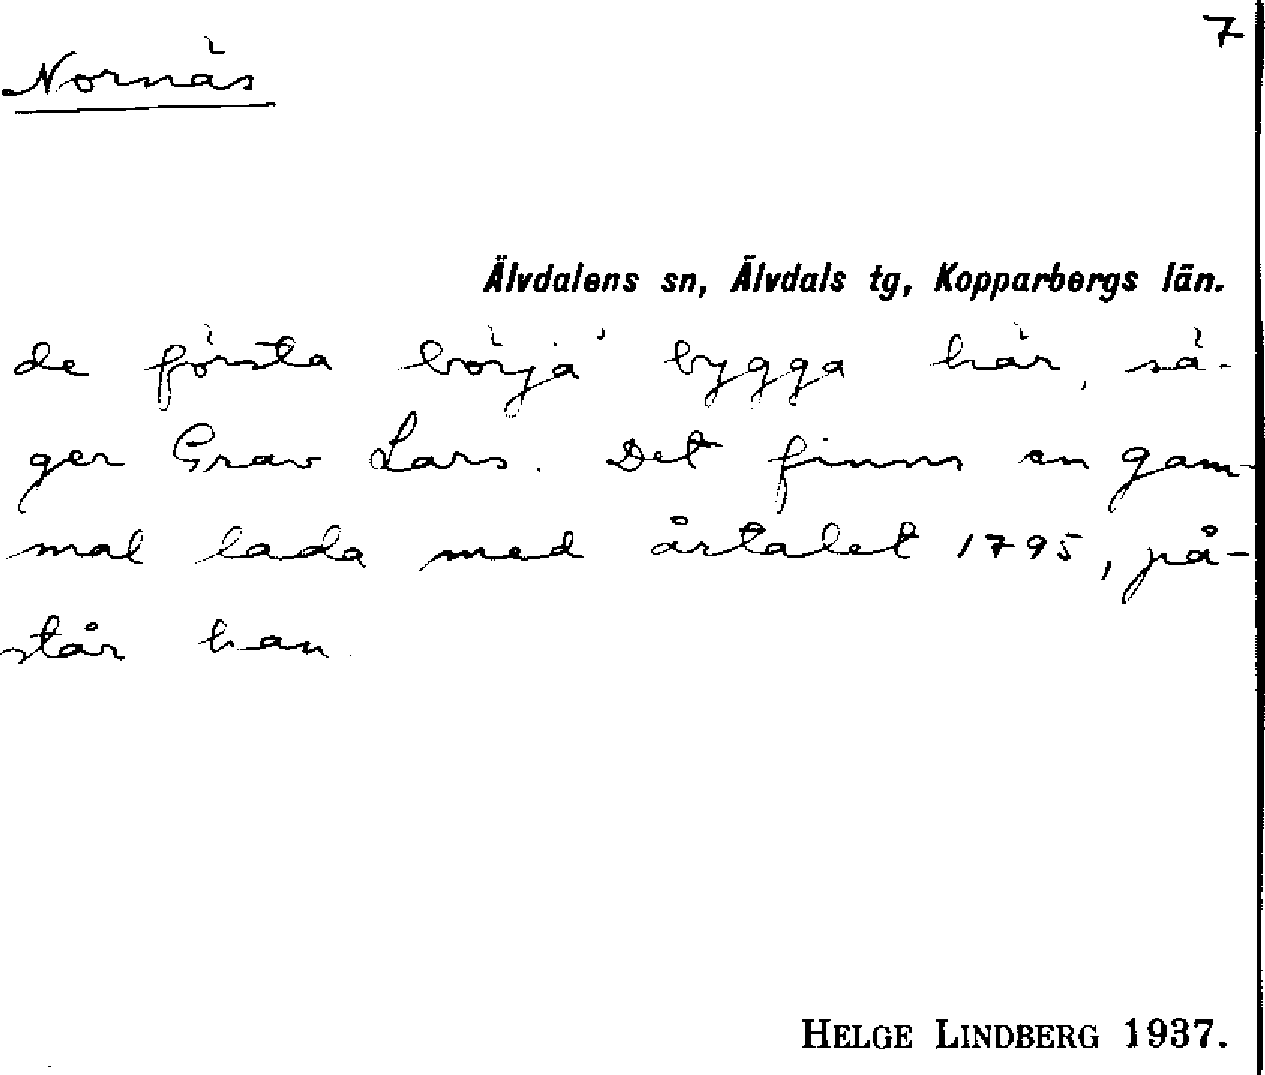 7
Nornäs
Älvdalens sn, Älvdals tg, Kopparbergs län.
de första börja' bygga här, sä-
ger Grav Lars. Det finns en gam-
mal lada med årtalet 1795, på-
står han
HELGE LINDBERG 1937.